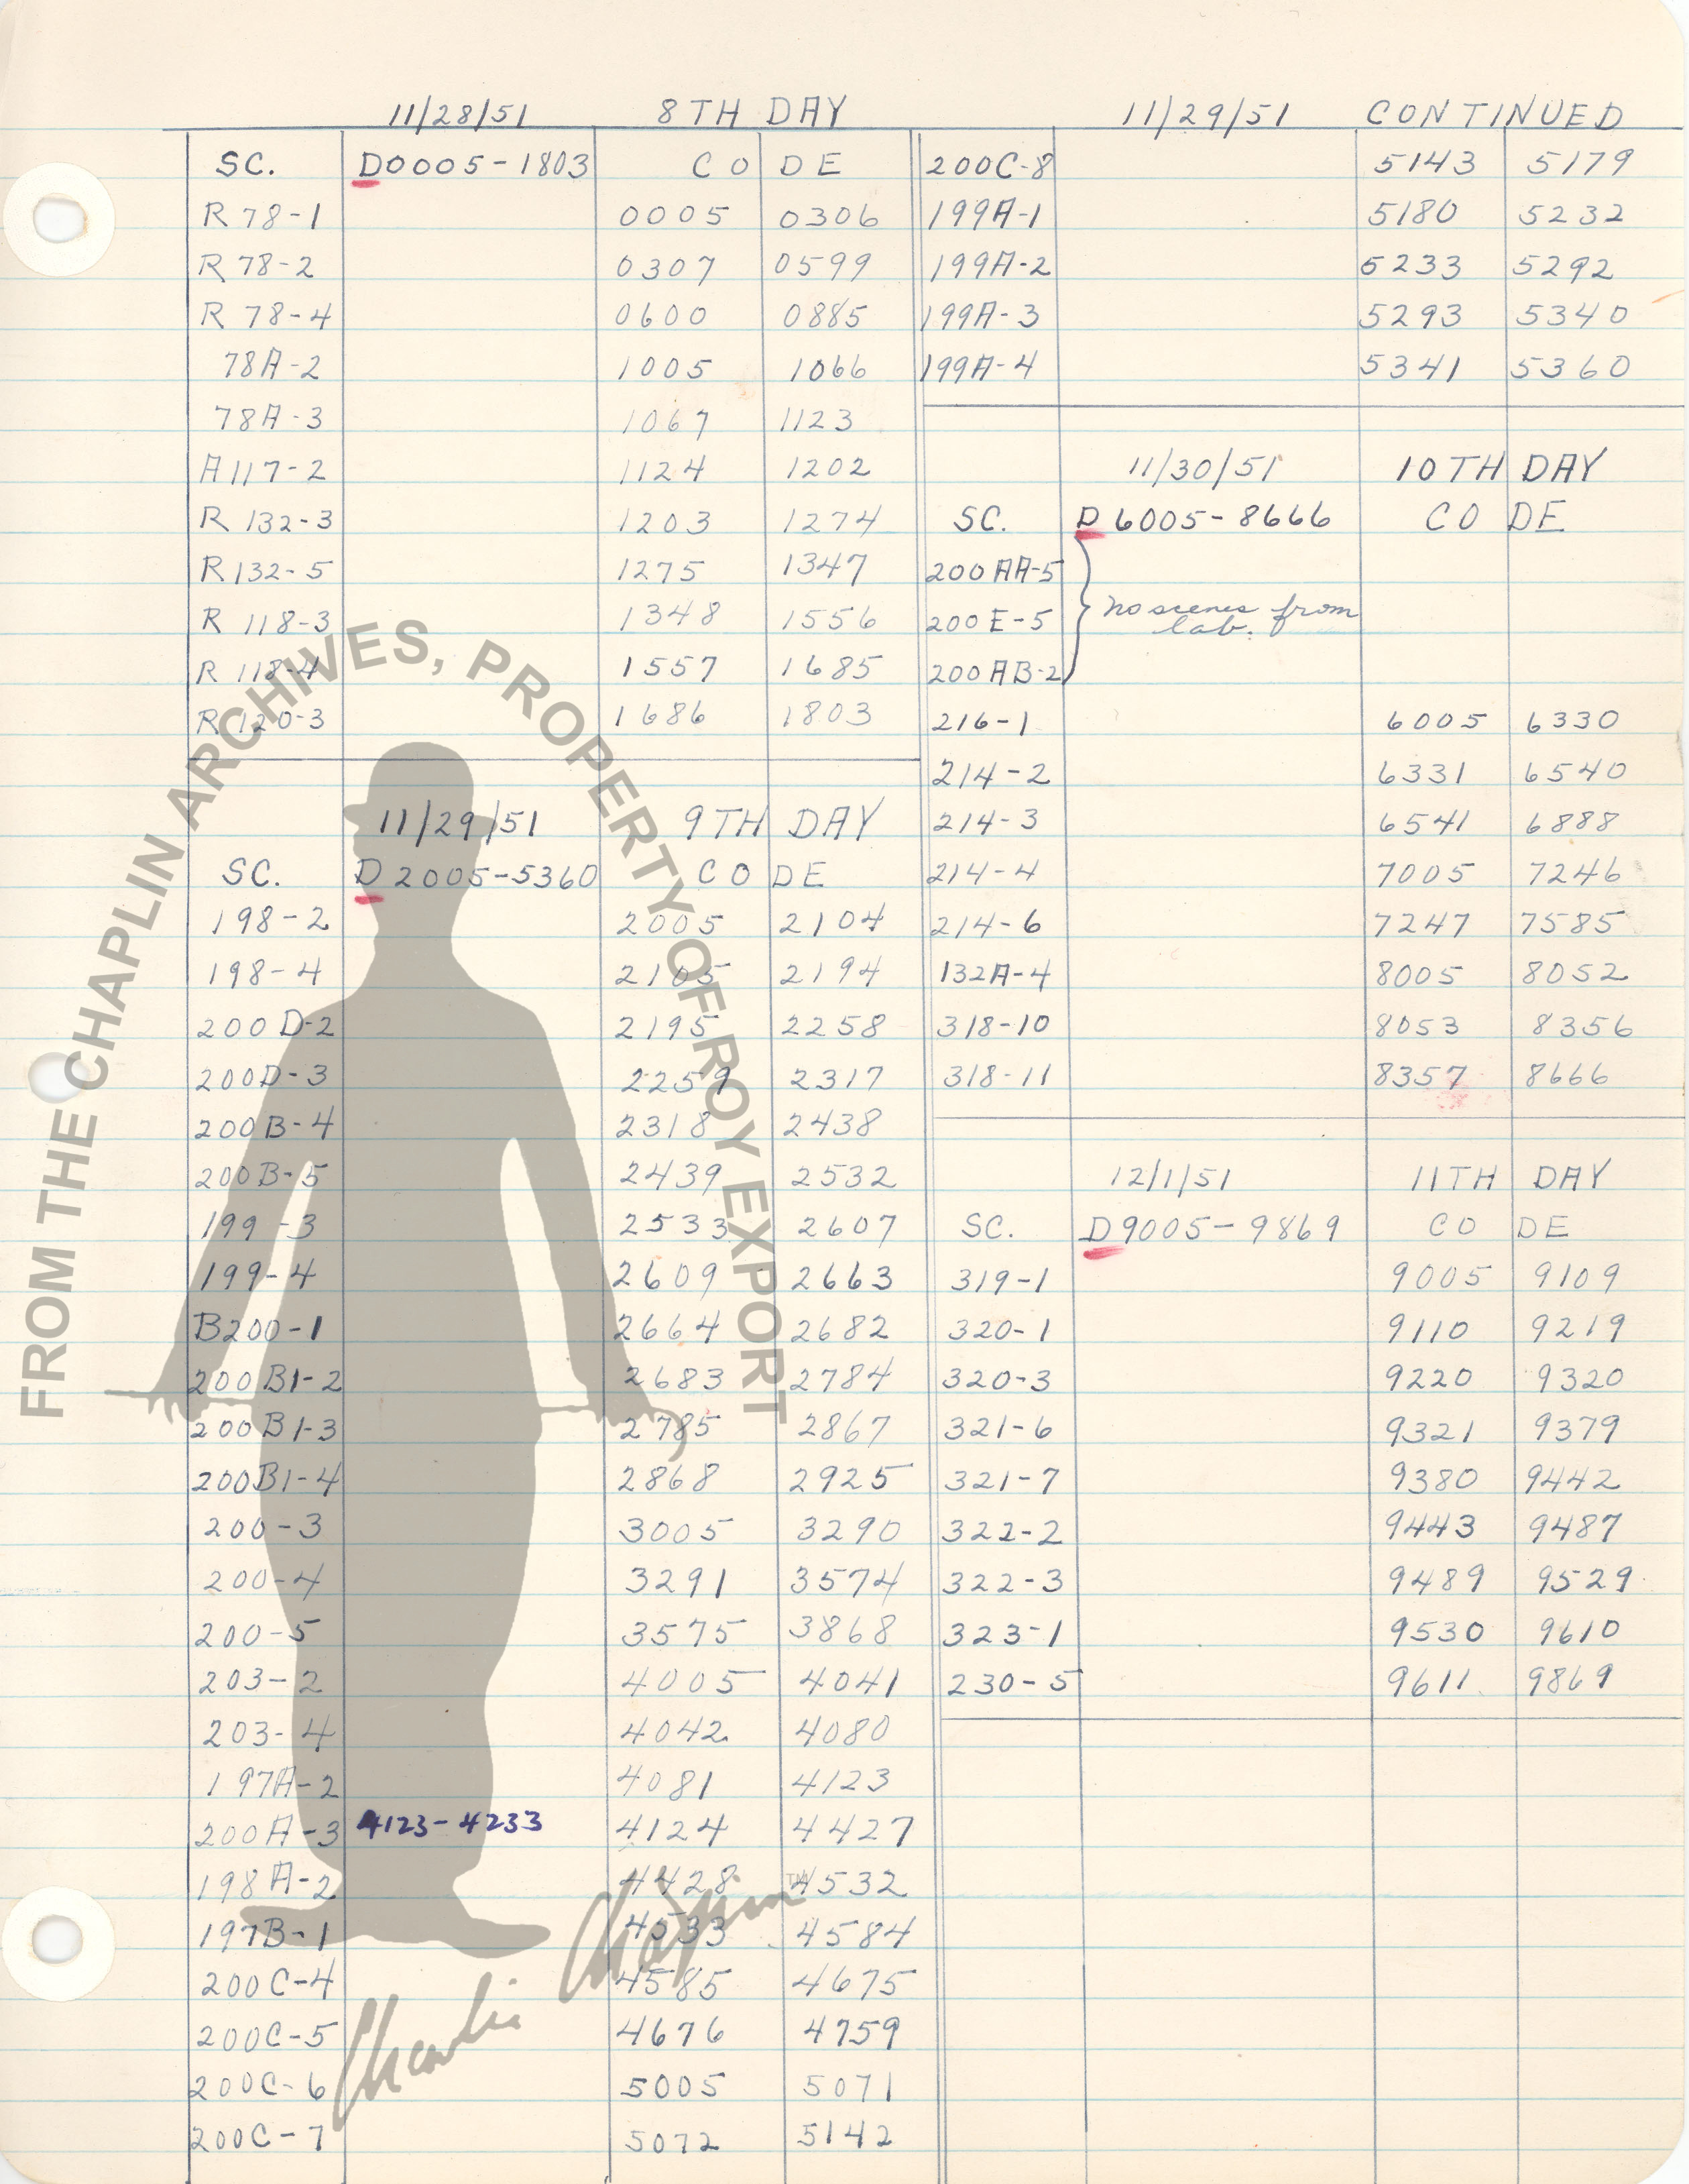 11/28/51 8TH DAY
SC. D0005-1803 CODE
R 78-1 0005 0306
R 78-2 0307 0599
R 78-4 0600 0885
78A-2 1005 1066
78A-3 1067 1123
A117-2 1124 1202
R 132-3 1203 1274
R132-5 1275 1347
R 118-3 1348 1556
R 118-4 1557 1685
R 120-3 1686 1803
11/29/51 9TH DAY
SC. D2005-5360 CODE
198-2 2005 2104
198-4 2105 2194
200D-2 2195 2258
200D-3 2259 2317
200B-4 2318 2438
200B-5 2439 2532
199-3 2533 2607
199-4 2609 2663
B200-1 2664 2682
200B1-2 2683 2784
200B1-3 2785 2867
200B1-4 2868 2925
200-3 3005 3290
200-4 3291 3574
200-5 3575 3868
203-2 4005 4041
203-4 4042 4080
197A-2 4081 4123
200A-3 4123-4233 4124 4427
198A-2 4428 4532
197B-1 4533 4584
200C-4 4585 4675
200C-5 4676 4759
200C-6 5005 5071
200C-7 5072 5142
11/29/51 CONTINUED
200C-8 5143 5179
199A-1 5180 5232
199A-2 5233 5292
199A-3 5293 5340
199A-4 5341 5360
11/30/51 10TH DAY
SC. D6005-8666 CODE
200AA-5
200E-5 no scenes from
lab.
200AB-2
216-1 6005 6330
214-2 6331 6540
214-3 6541 6888
214-4 7005 7246
214-6 7247 7585
132A-4 8005 8052
318-10 8053 8356
318-11 8357 8666
12/1/51 11TH DAY
SC. D9005-9869 CODE
319-1 9005 9109
320-1 9110 9219
320-3 9220 9320
321-6 9321 9379
321-7 9380 9442
322-2 9443 9487
322-3 9489 9529
323-1 9530 9610
230-5 9611 9869
FROM THE CHAPLIN ARCHIVES, PROPERTY OF ROY EXPORT
Charlie Chaplin TM